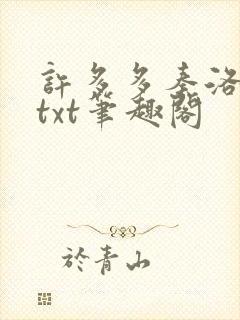 許多多秦洛
txt筆趣閣
於青山